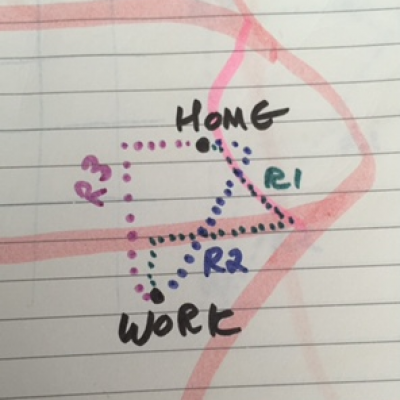 HOME
R3
R1
R2
WORK